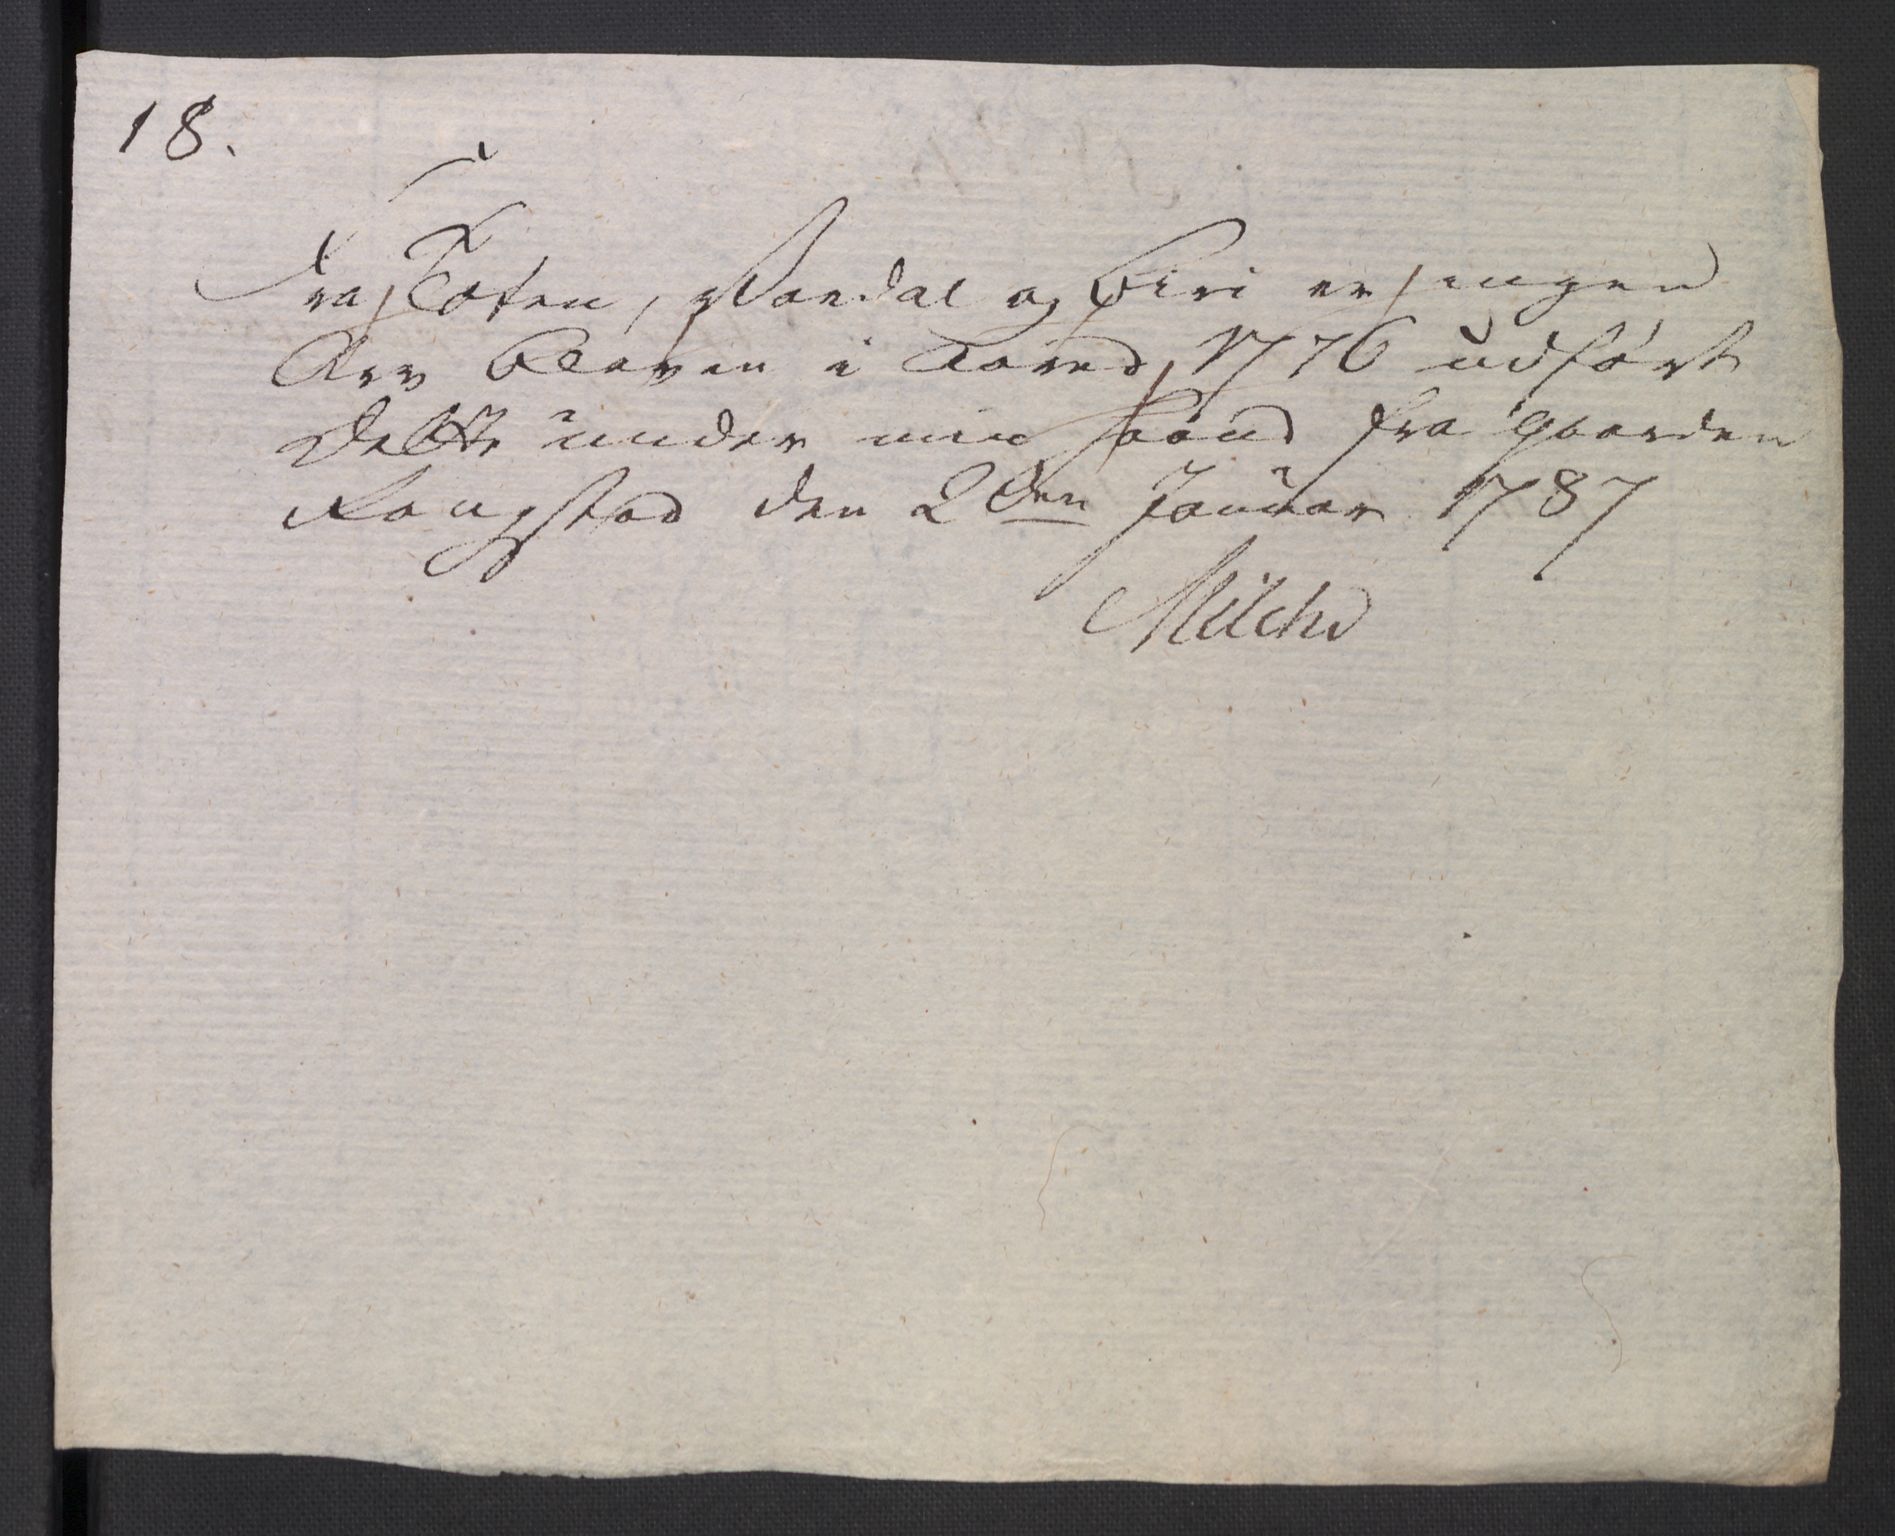 18.
Fra Toten, Vardal og Biri er ingen
Arv bleven i Aaret 1776 udført
Dette under min Haand fra Gaarden
Rangstad den 2den Januar 1787